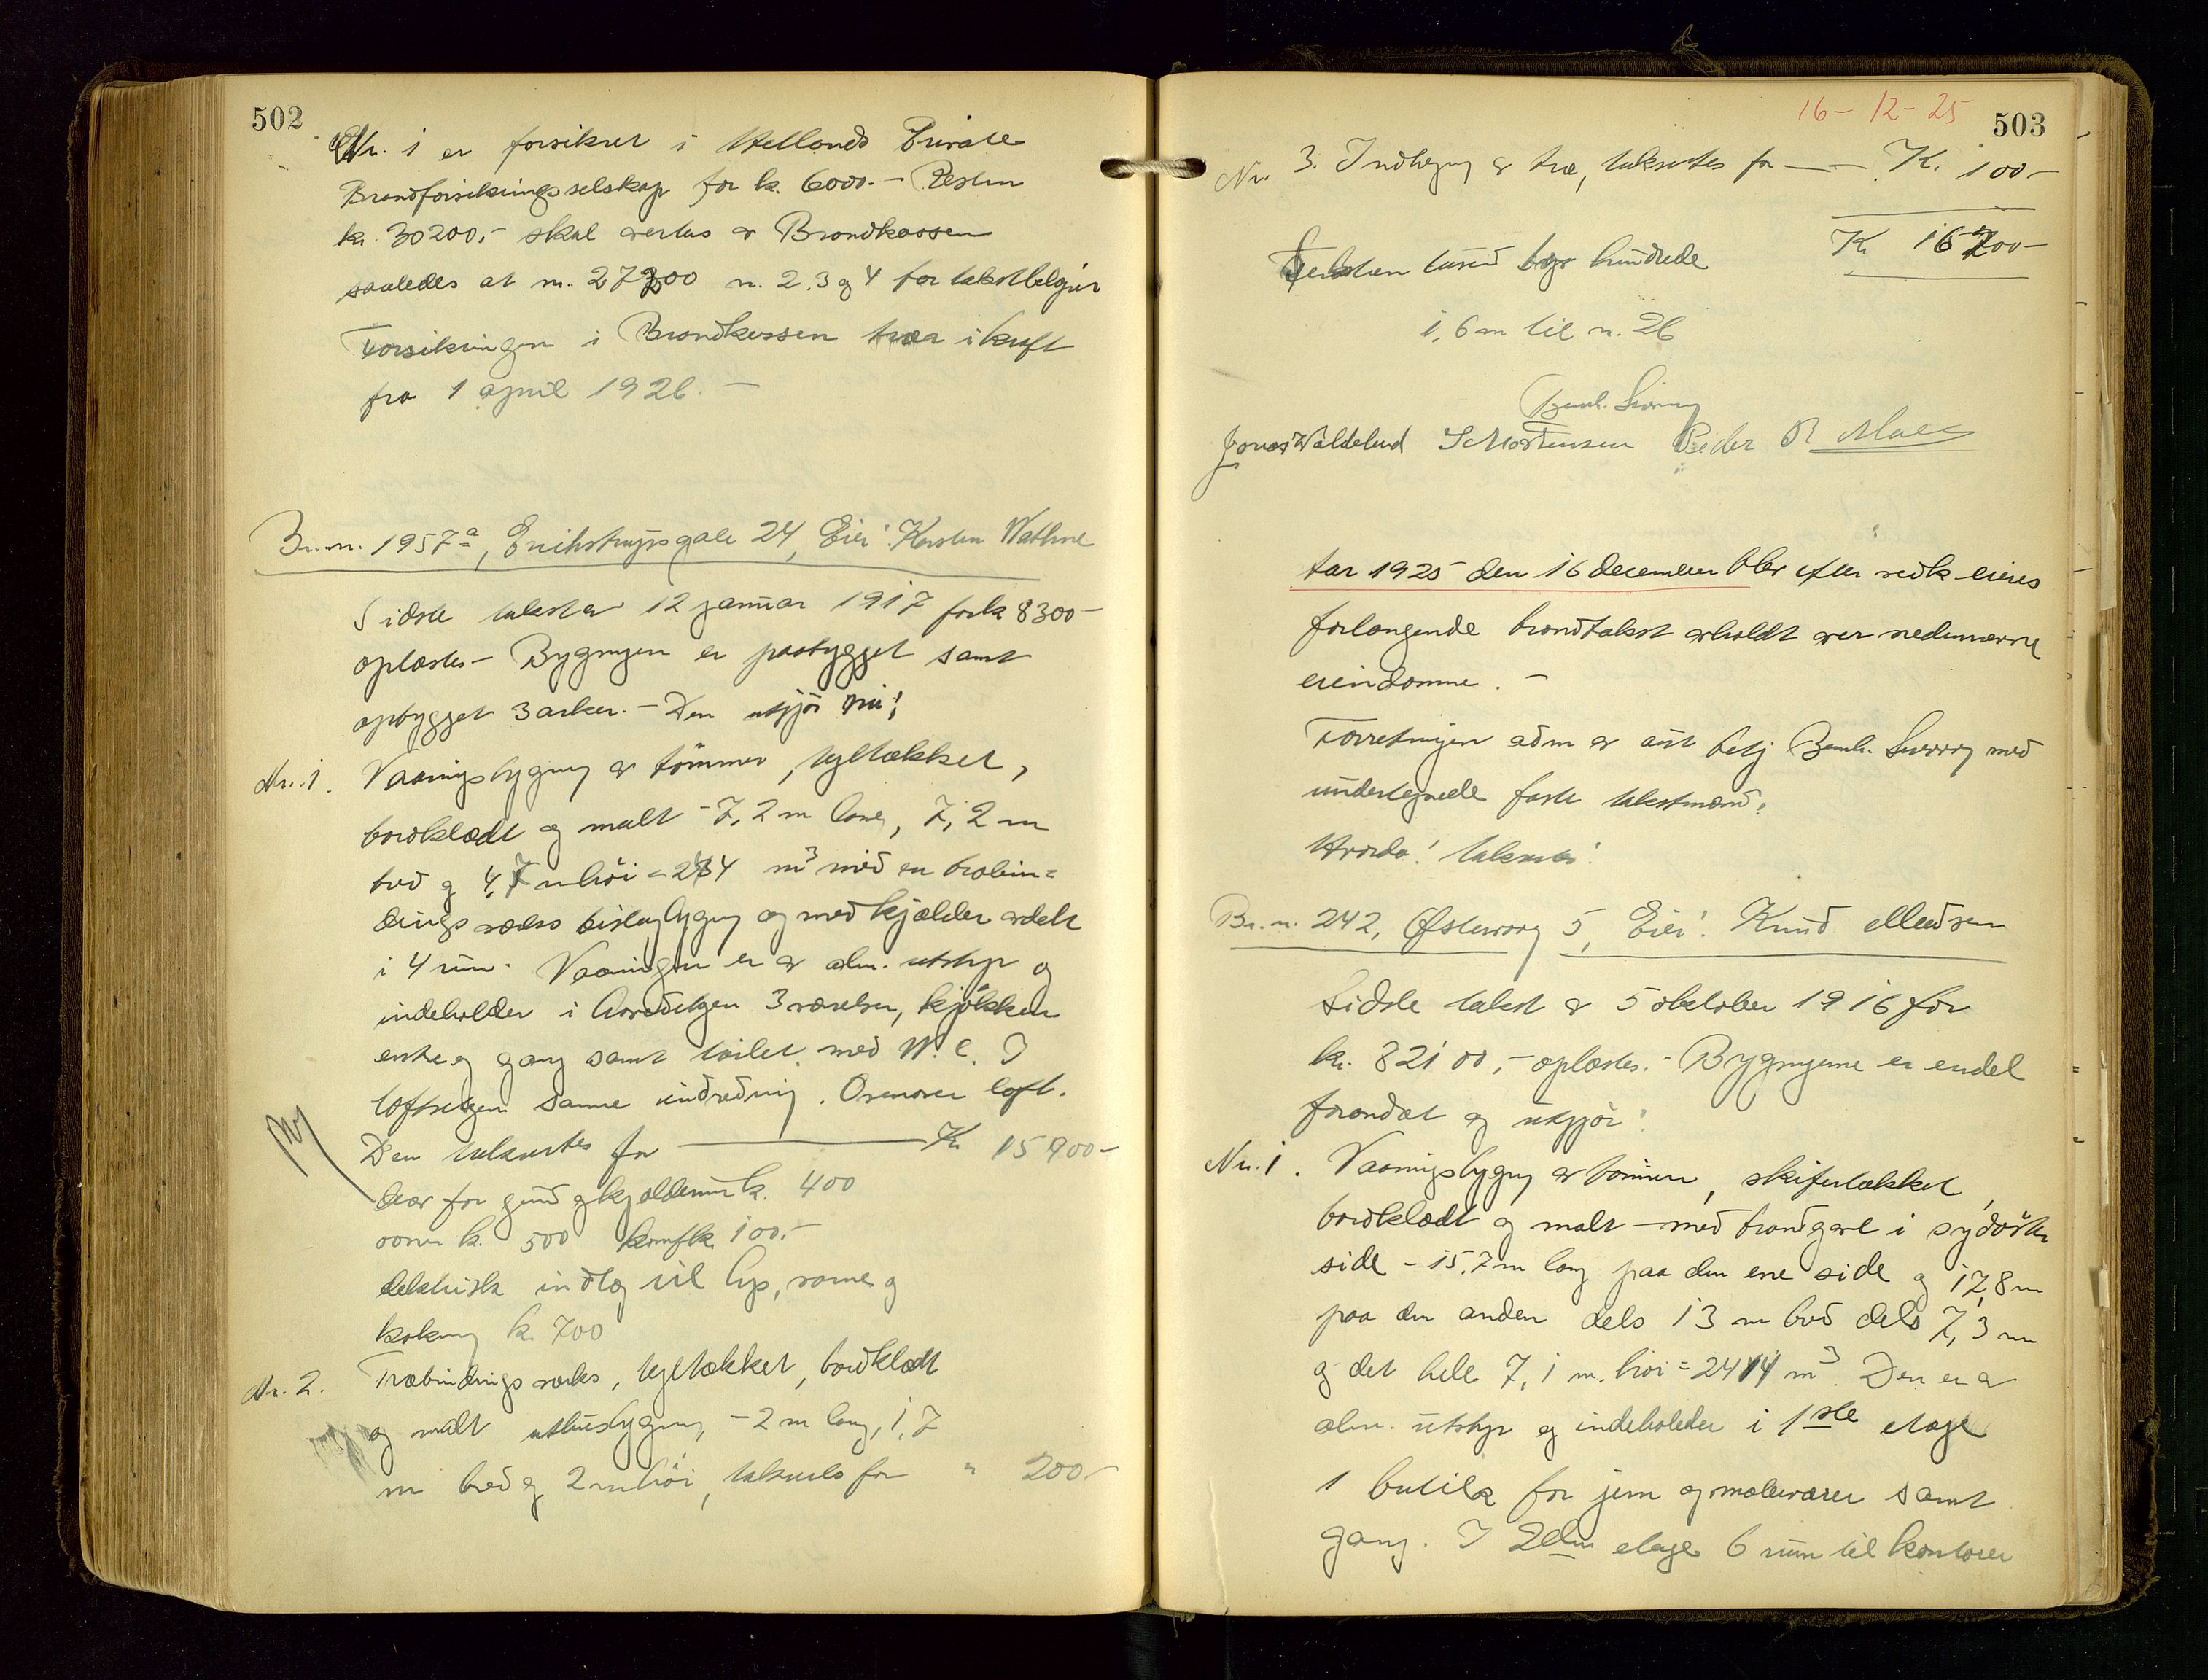 502
Nr. 1 er forsikret i Hollands Private
Brandforsikringsselskap for k. 6000.- Resten
kr. 30200,- skal overtas av Brandkassen
saaledes at nr. 27300 nr. 2. 3 og 4 for takstbelgier
Forsikringen i Brandkassen træer i kraft
fra 1 april 1926. -
Br. nr. 1957a, Erichstrupsgate 24, Eier: Karsten Wathne
Sidste takst av 12 januar 1917 for k 8300-
oplæstes - Bygningen er paabygget samt
opbygget 3 arker. - Den utgjør nu:
Nr. 1. Vaaningsbygning av tømmer, tegltækket,
bordklædt og malt - 7,2 m lang, 7,2 m
bred og 4,7 m høi = 244 m3 med en træbin=
dingsverks bislagbygning og med kjælder avdelt
i 4 rum. Vaaningen er av alm. utstyr og
indeholder i hovedetagen 3 værelser, kjøkken
entre og gang samt toilet med W. C. I
loftsetagen samme indredning. Ovenover loft.
Ny
Den takseres for Kr 15900-
herav for grund og kjældermur k. 400
ovner k. 500 komf k. 100.-
elektrisk indlæg til lys, varme og
kokning k. 700
Nr. 2. Træbindingsverks, tegltækket, bordklædt
og malt uthusbygning, - 2 m lang, 1,7
m bred og 2 m høi, takseres for " 200-
16-12-25
503
Nr. 3. Indhegning av træ, takseres for — — K. 100-
Seksten tusind to hundrede Kr 16200-
1,6 m til n. 26
Bernh. Sverroy
Jonas Waldeland S. Mortensen Peder R Maele
Aar 1925 den 16 december blev efter vedk. eieres
forlangende brandtakst avholdt over nedennævnte
eiendomme. -
Forretningen adm av aut betj Bernh. Sverroy med
undertegnede faste takstmænd.
Hvorda! takseres:
Br. nr. 242, Østervaag 5, Eier: Knud Ellendsen
Sidste takst av 5 oktober 1916 for
kr. 82100,- oplæstes. - Bygningerne er endel
forandret og utgjør:
Nr. 1. Vaaningsbygning av tømmer, skifertækket,
bordklædt og malt - med brandgavl i sydøstre
side - 15,7 m lang paa den ene side og 17,8 m
paa den anden dels 13 m bred dels 7,3 m
og det hele 7,1 m. høi = 2414 m3. Den er av
alm. utstyr og indeholder i 1ste etage
1 butik for jern og malervarer samt
gang. I 2den etage 6 rum til kontorer